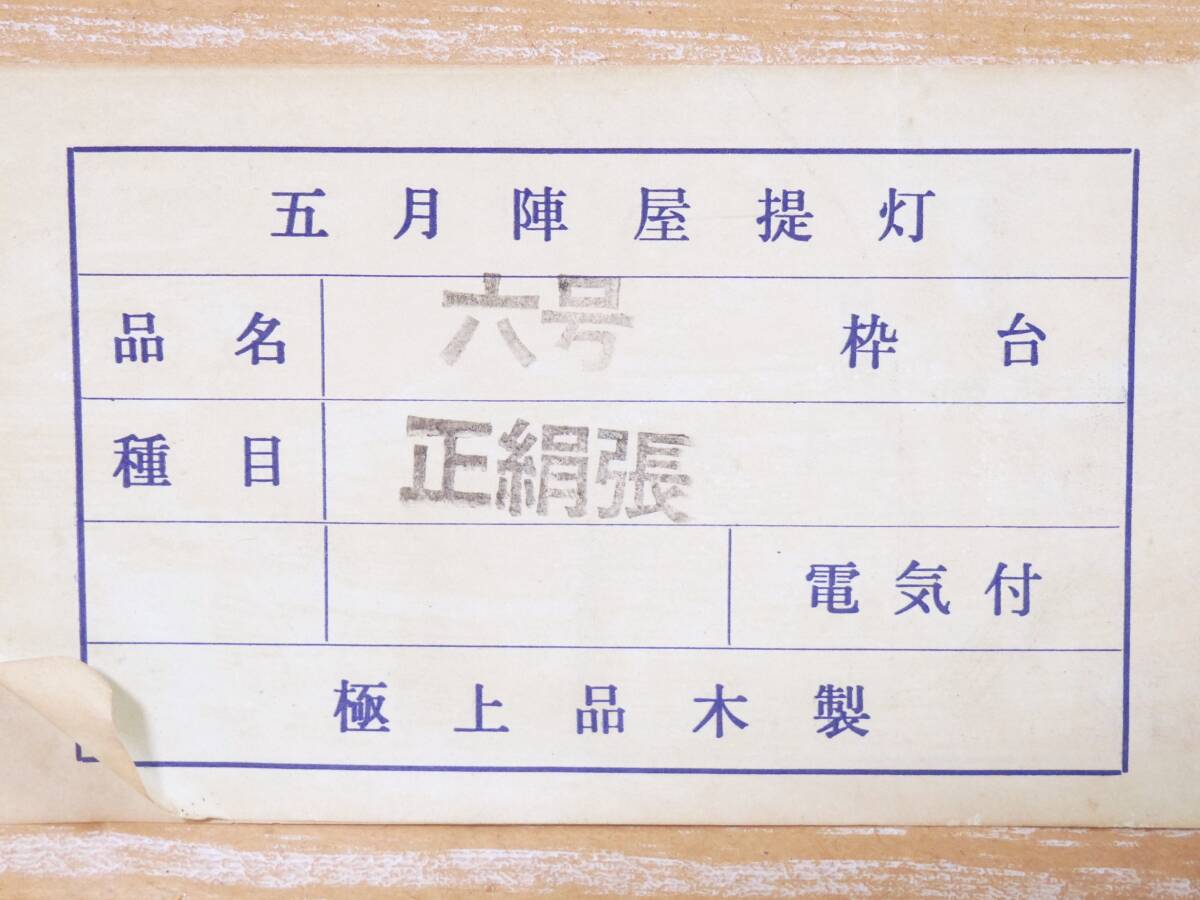 五月陣屋提灯
品名 六号 枠台
種目 正絹張
電気付
極上品木製